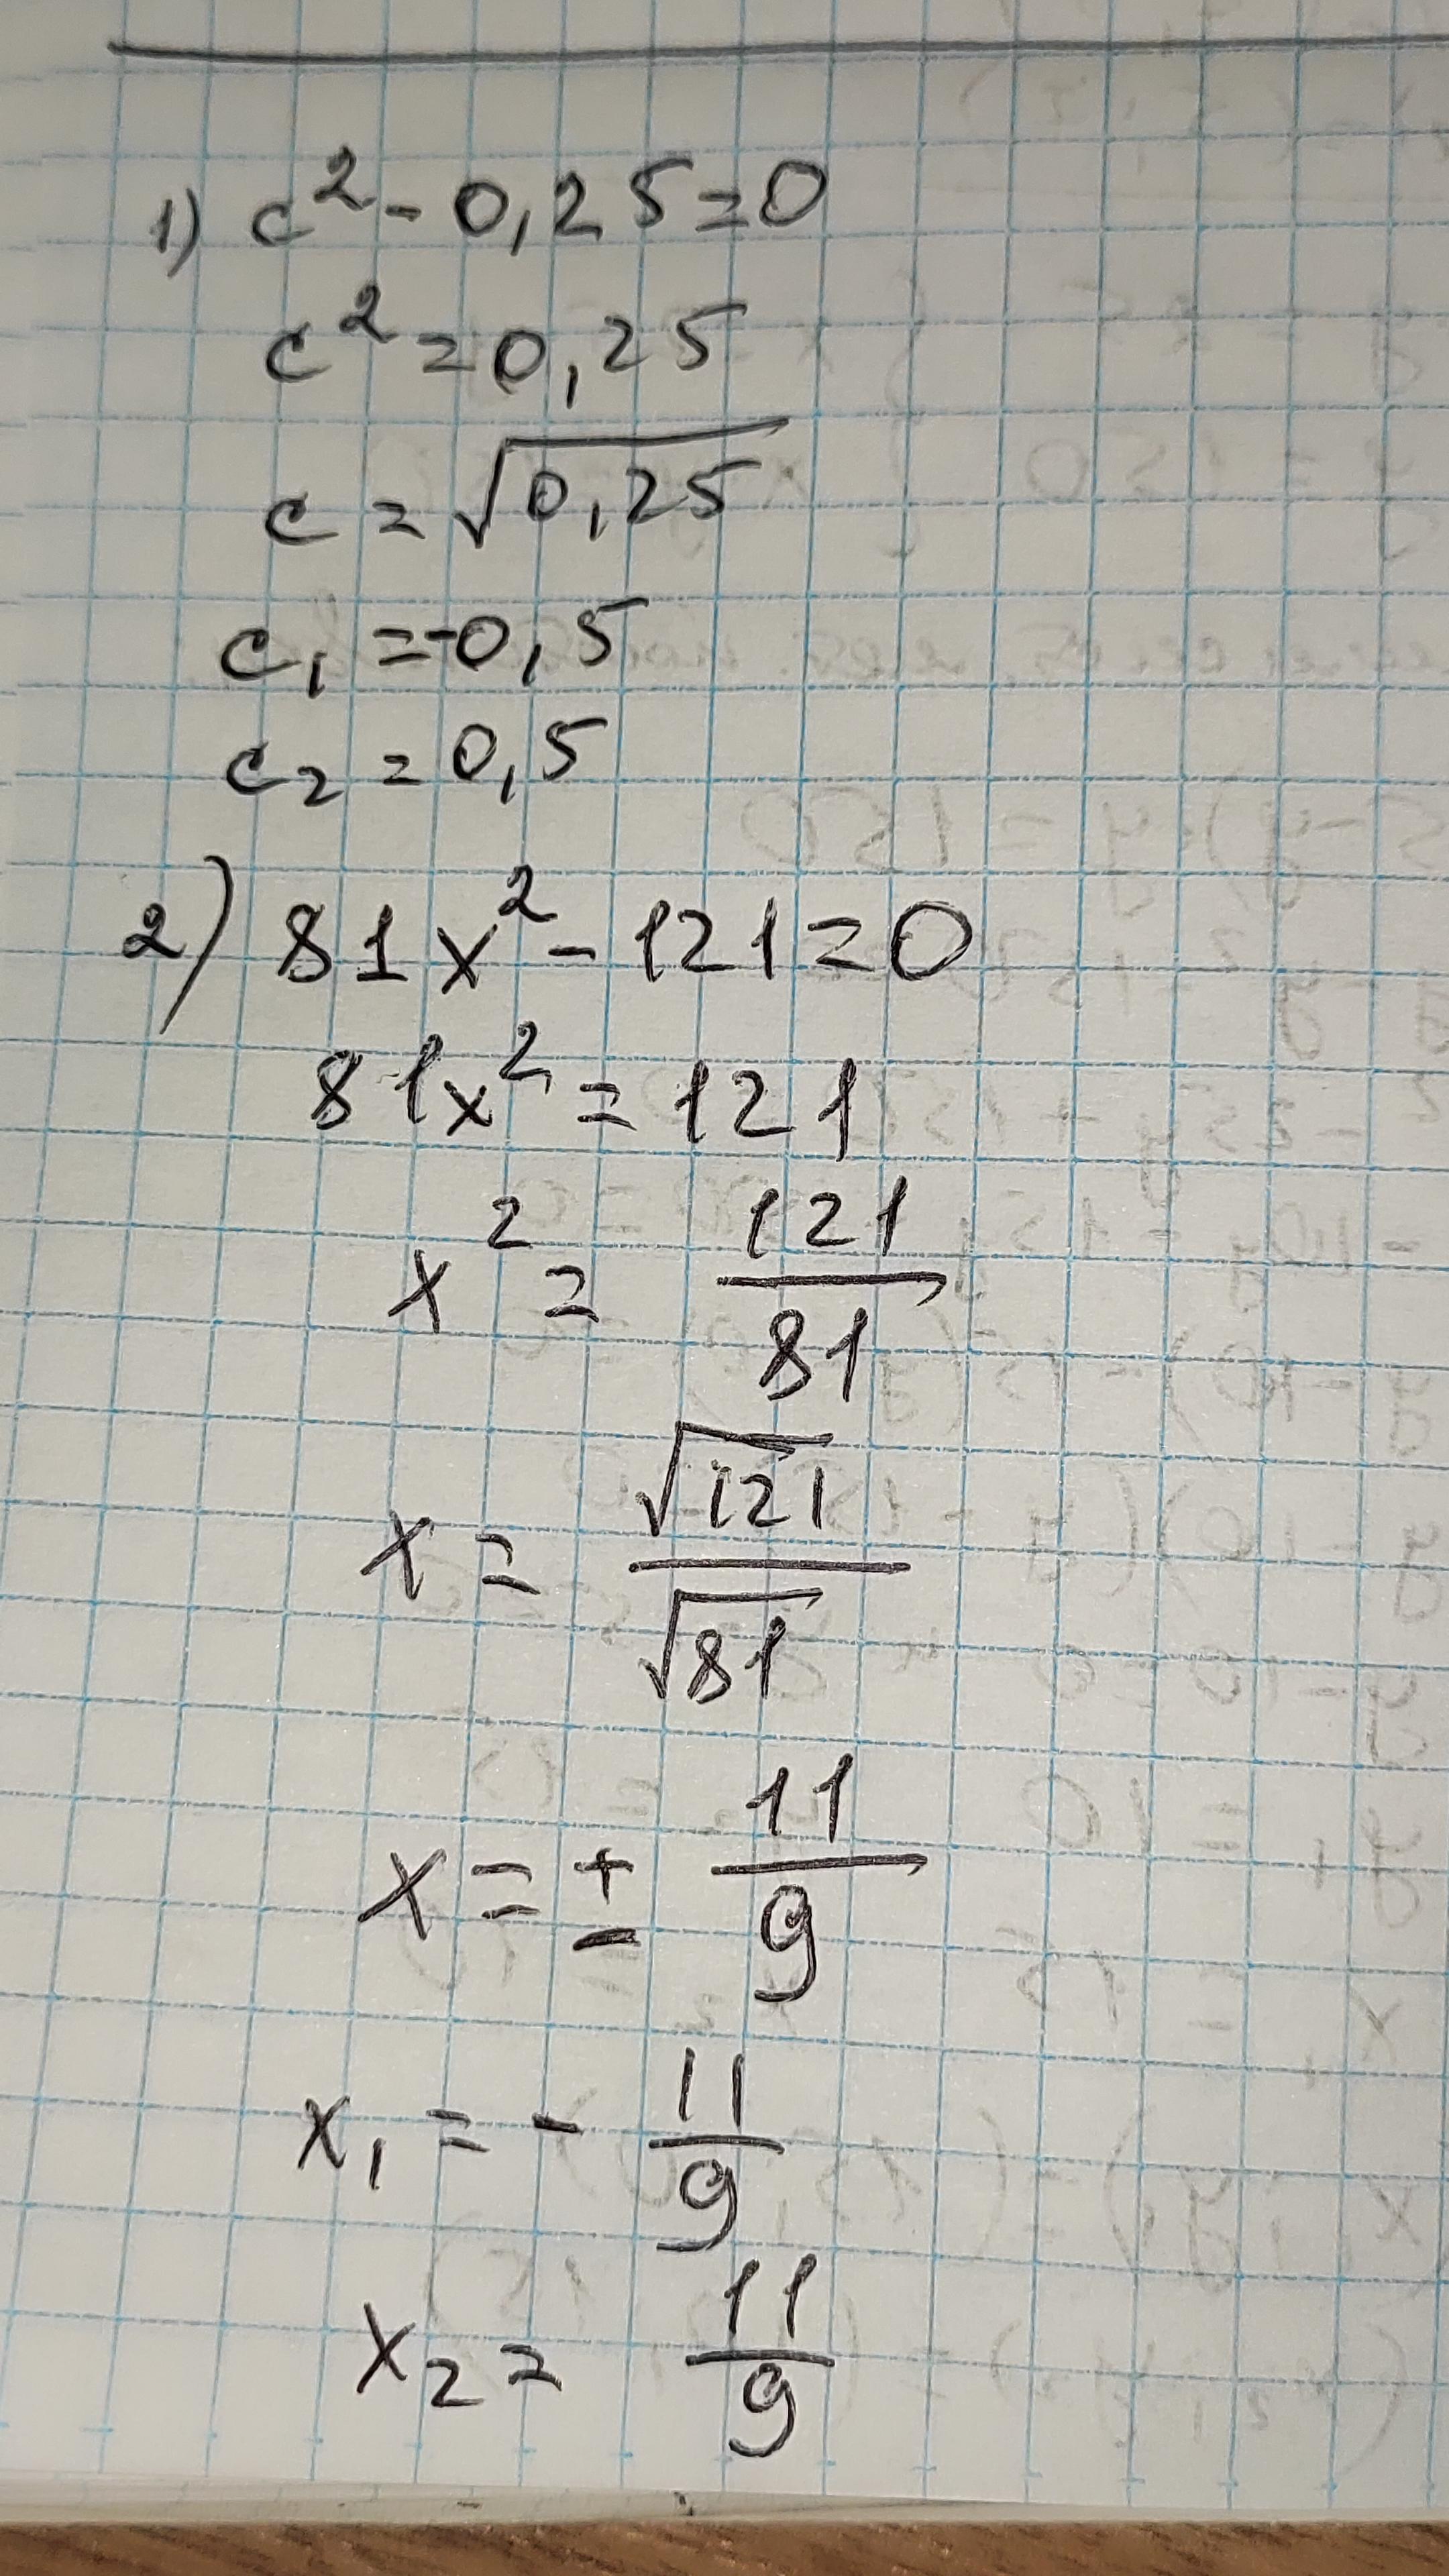 1) c² - 0,25 = 0
c² = 0,25
c = √0,25
c₁ = -0,5
c₂ = 0,5
2) 81x² - 121 = 0
81x² = 121
x² = 121/81
x = √121/√81
x = ± 11/9
x₁ = - 11/9
x₂ = 11/9